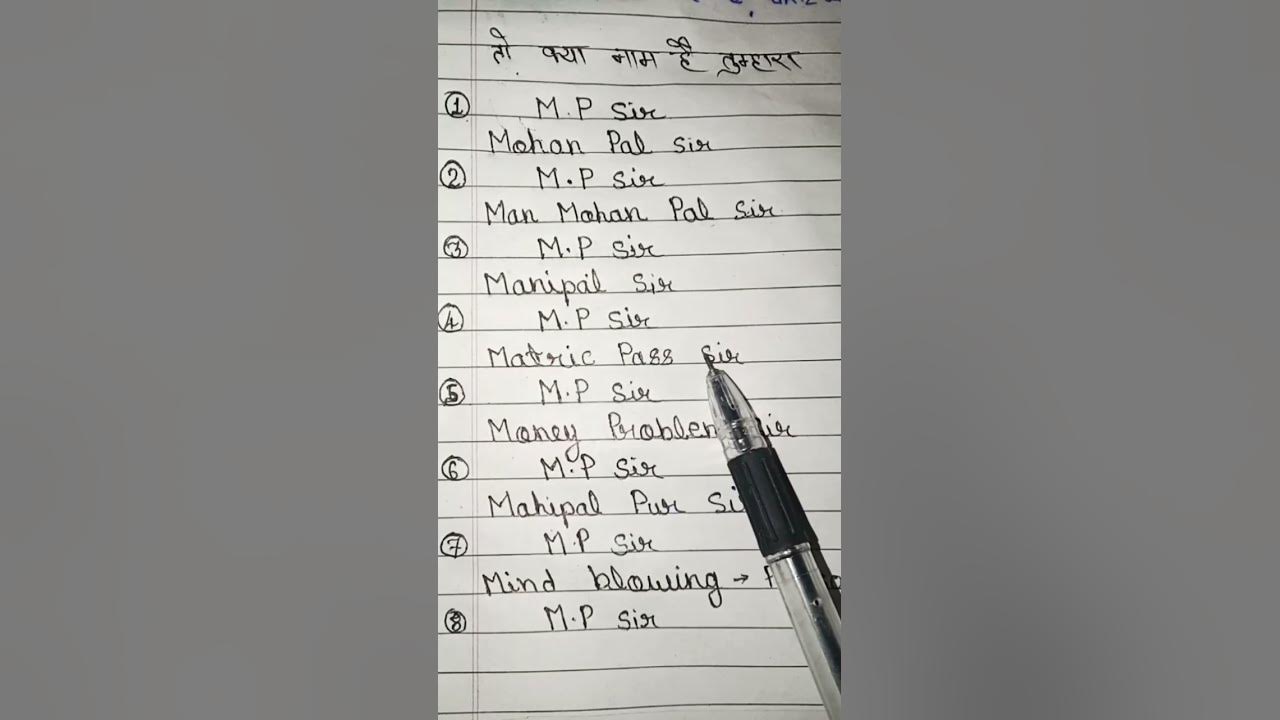 तो क्या नाम है तुम्हारा
① M.P Sir
Mohan Pal Sir
② M.P Sir
Man Mohan Pal Sir
③ M.P Sir
Manipal Sir
④ M.P Sir
Matric Pass Sir
⑤ M.P Sir
Money Problem Sir
⑥ M.P Sir
Mahipal Pur Si
⑦ M.P Sir
Mind blowing →
⑧ M.P Sir